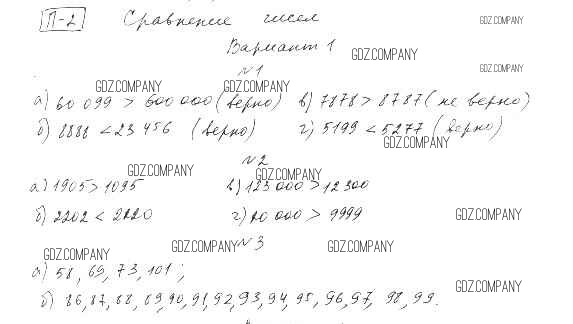 П-2 Сравнение чисел
GDZ.COMPANY
Вариант 1
GDZ.COMPANY
GDZ.COMPANY
№1
GDZ.COMPANY GDZ.COMPANY
а) 60 099 > 600 000 (верно) в) 7878 > 8787 (не верно)
б) 8888 < 23 456 (верно) г) 5199 < 5277 (верно)
GDZ.COMPANY
№2
GDZ.COMPANY GDZ.COMPANY
а) 1905 > 1095 в) 123 000 > 12 300
б) 2202 < 2220 г) 10 000 > 9999
GDZ.COMPANY
GDZ.COMPANY GDZ.COMPANY №3 GDZ.COMPANY
а) 58, 69, 73, 101;
GDZ.COMPANY
б) 86, 87, 88, 89, 90, 91, 92, 93, 94, 95, 96, 97, 98, 99.